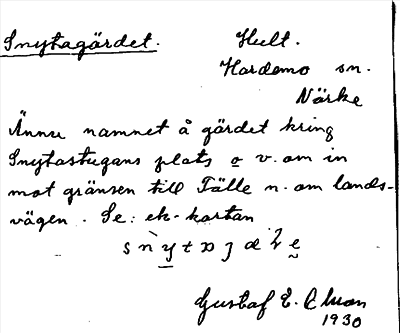 Snytagärdet. Hult.
Hardemo sn.
Närke
Ännu namnet å gärdet kring
Snytastugans plats o v. om in
mot gränsen till Tälle n. om lands-
vägen. Se: ek-kartan
Gustaf E.
1930